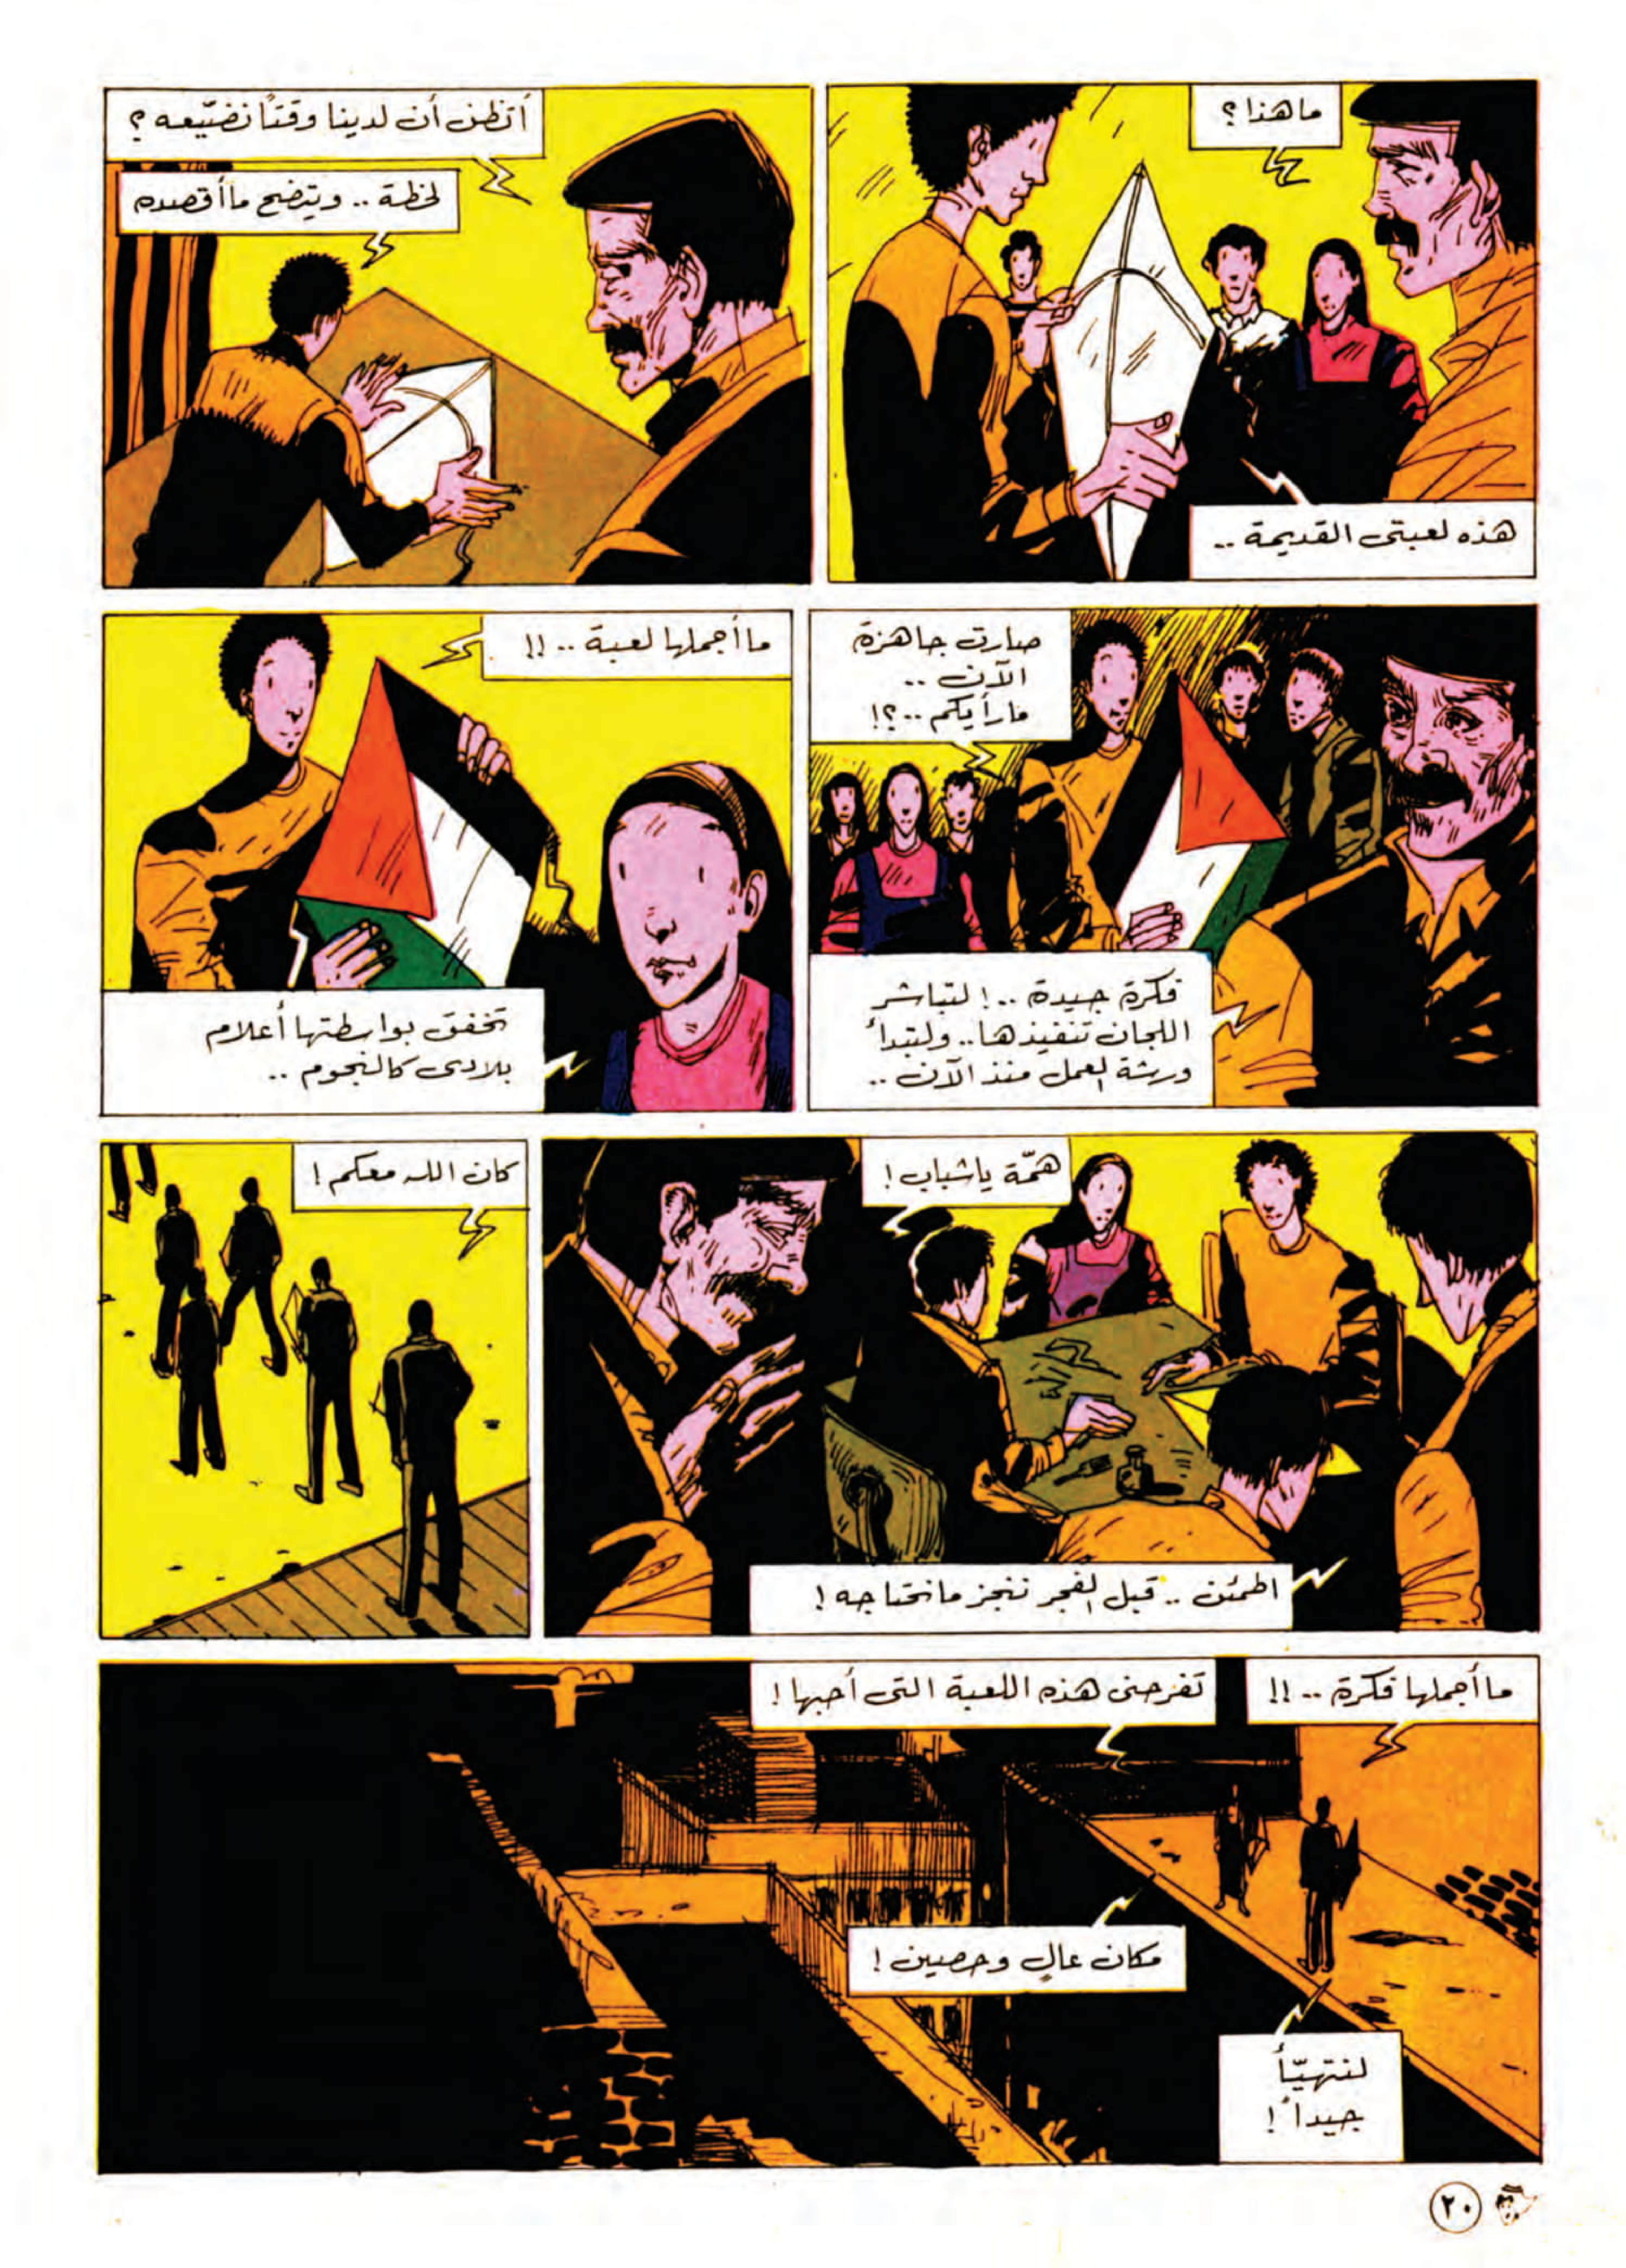 ما هذا؟
هذه لعبتى القديمة ..
أتظن أن لدينا وقتاً نضيّعه؟
لحظة .. ويتضح ما أقصده
صارت جاهزة
الآن ..
ما رأيكم ..؟!
فكرة جيدة ..! لتباشر
اللجان تنفيذها .. ولتبدأ
ورشة العمل منذ الآن ..
ما أجملها لعبة .. !!
تخفق بواسطتها أعلام
بلادى كالنجوم ..
همّة يا شباب!
اطمئن .. قبل الفجر ننجز ما نحتاجه!
كان الله معكم!
ما أجملها فكرة .. !!
تفرحنى هذه اللعبة التى أحبها!
مكان عالٍ وحصين!
لنتهيّأ
جيداً!
٢٠